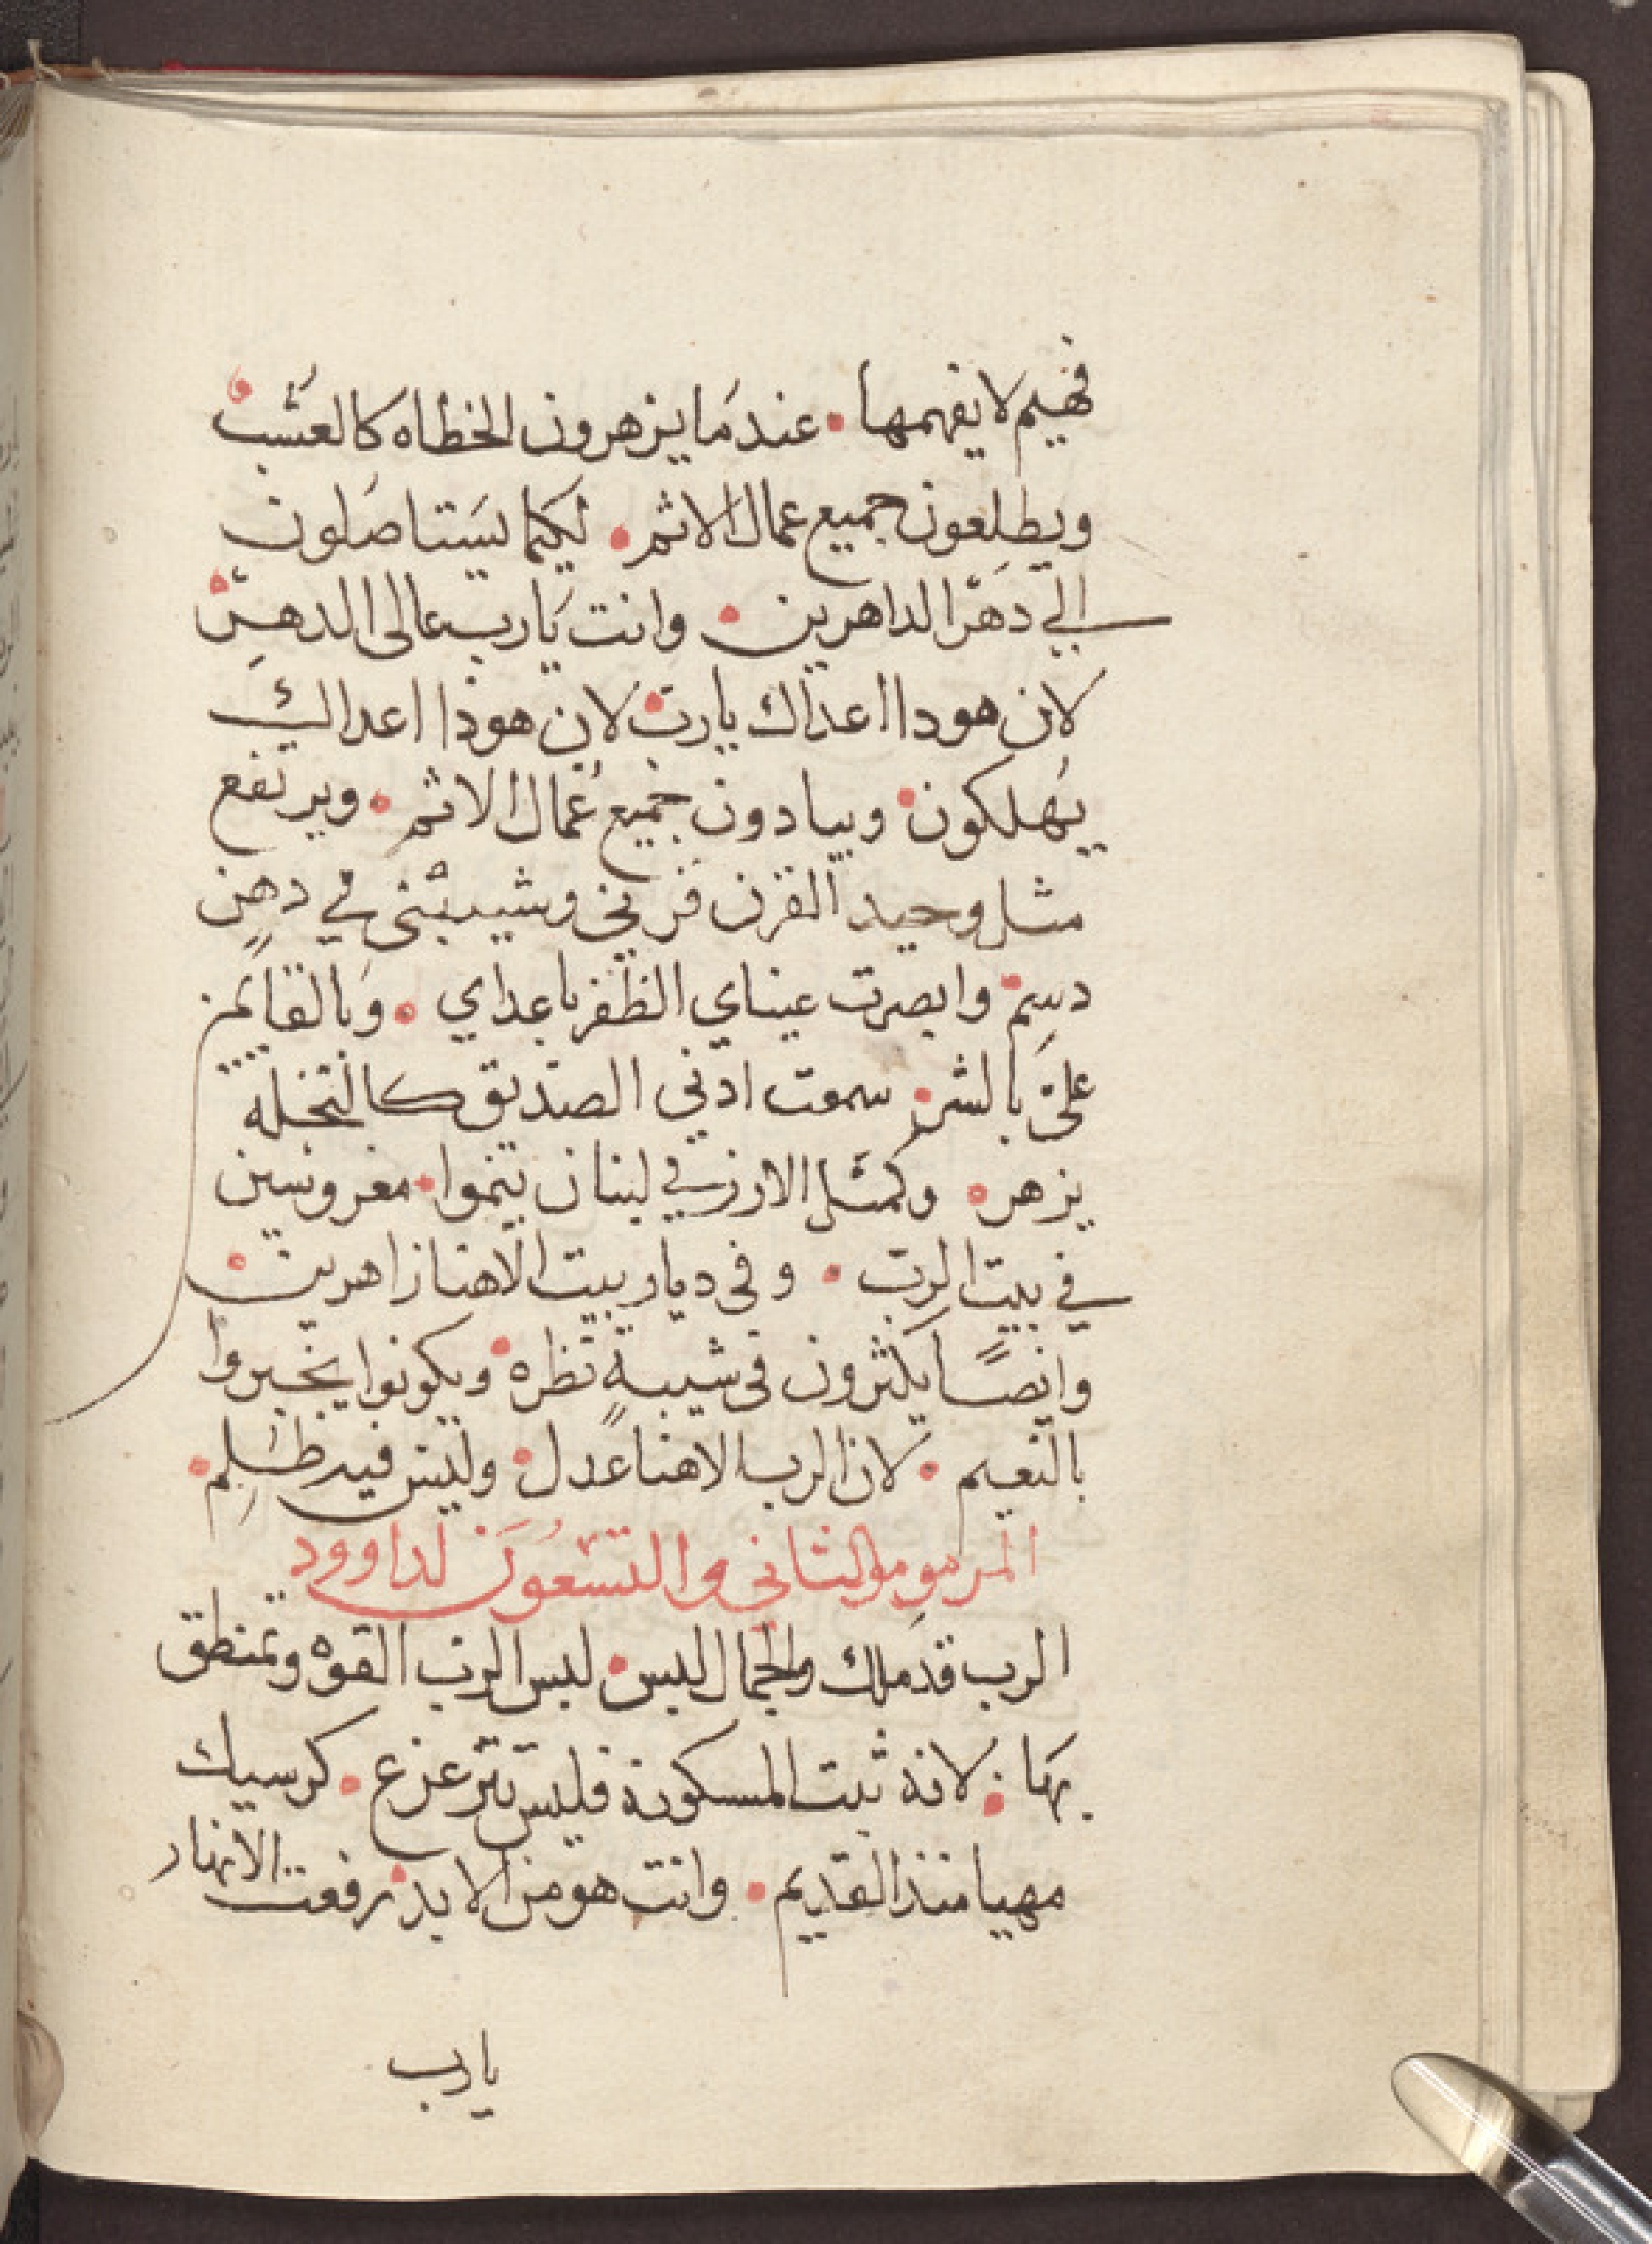 فهيم لا يفهمها • عندما يزهرون الخطاه كالعشب •
ويطلعون جميع عمال الاثم • لكيما يستاصلون
الي دهر الداهرين • وانت يارب عالى الى الدهر •
لان هوذا اعداك يارب • لان هوذا اعداك
يهلكون • ويبادون جميع عمال الاثم • ويرتفع
مثل وحيد القرن قرني وشيبتى في دهن
دسم • وابصرت عيناي الظفر باعداي • وبالقايمن
على بالشر • سمعت ادني الصديق كالنخله
يزهر • وكمثل الارز في لبنان ينموا • مغروسين
في بيت الرب • وفى ديار بيت الاهنا زاهرين •
وايضًا يكثرون فى شيبةٍ نظره • ويكونوا يخبروا
بالنعيم • لان الرب الاهنا عدل • وليس فيه ظلم •
المزمور الثاني والتسعون لداوود
الرب قد ملك والجمال لبس • لبس الرب القوه وتمنطق
بها • لانه ثبت المسكونة فليس تتزعزع • كرسيك
مهيا منذ القديم • وانت هو من الابد • رفعت الانهار
يارب